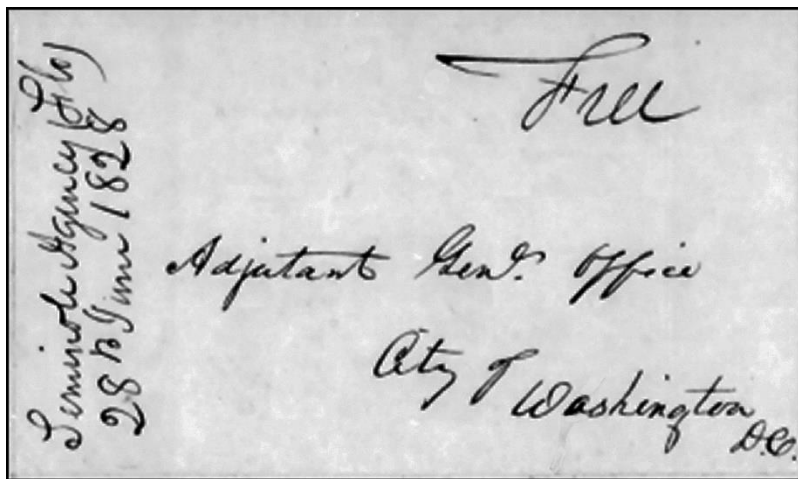 Free
Seminole Agency (Flo)
28th June 1828
Adjutant Genl. Office
City of
Washington
D.C.